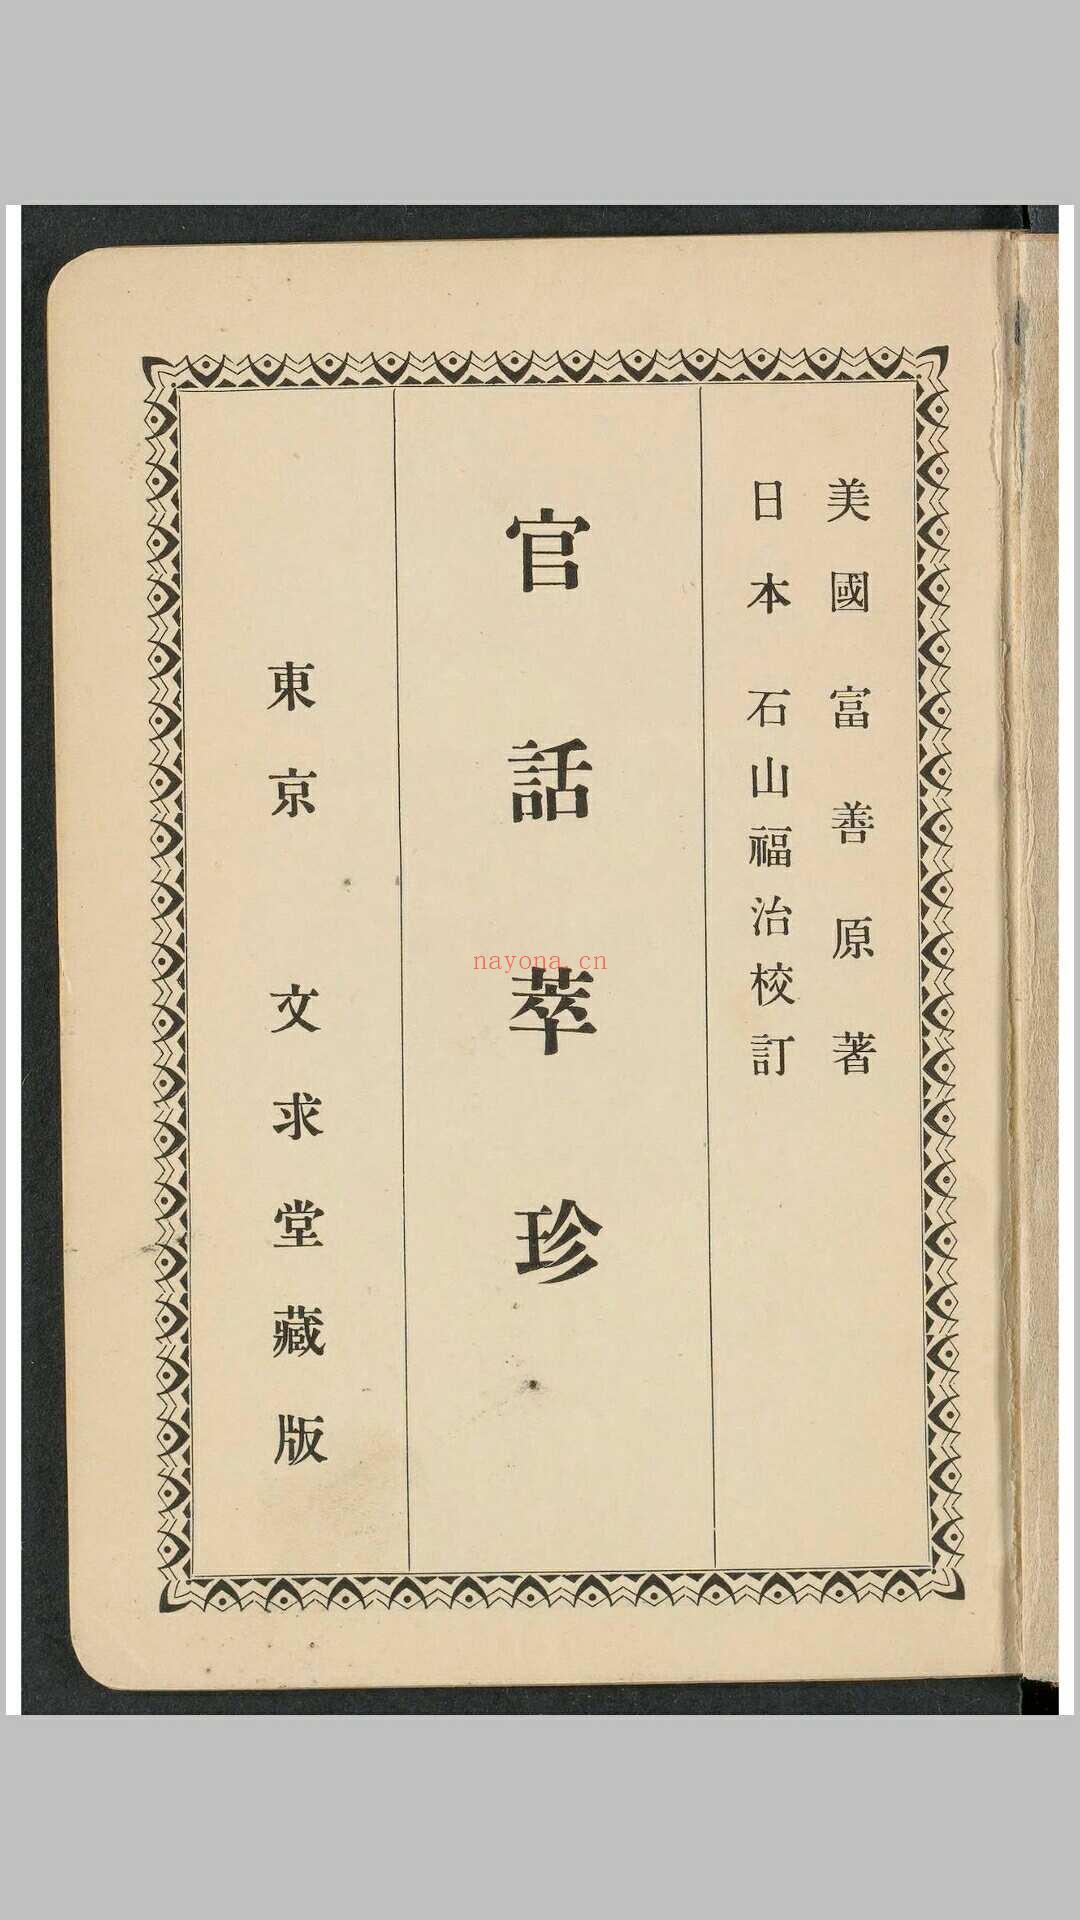 美國富善原著
日本 石山福治校訂
官話萃珍
東京 文求堂藏版
nayona.cn